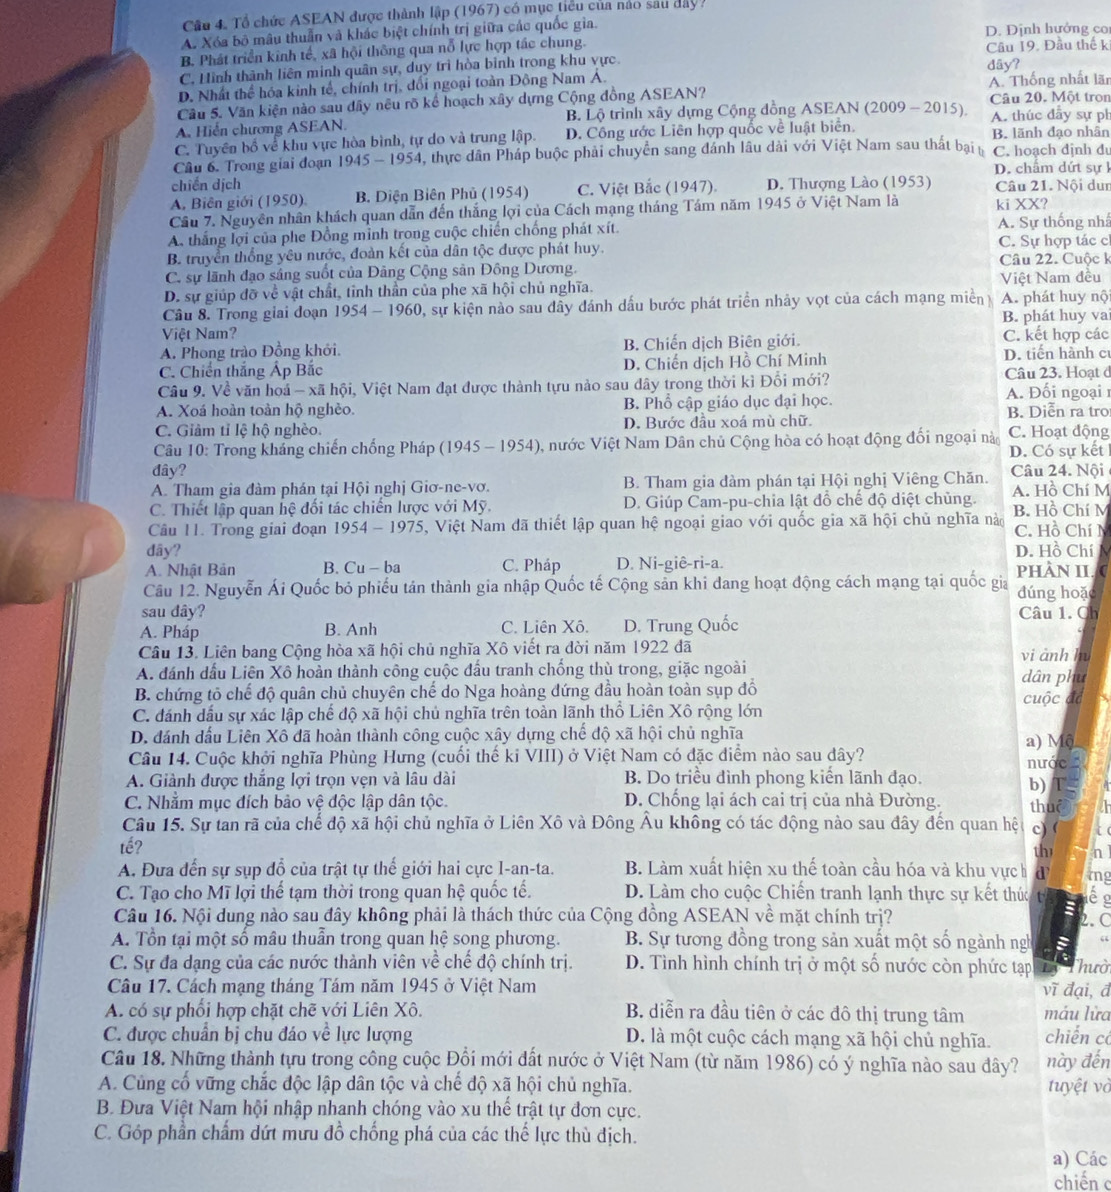 Câu 4. Tổ chức ASEAN được thành lập (1967) có mục tiêu của nào sau đây?
A. Xóa bỏ mâu thuẫn và khác biệt chính trị giữa các quốc gia.
B. Phát triển kinh tế, xã hội thông qua nỗ lực hợp tác chung.
C. Hình thành liên minh quân sự, duy trì hòa bình trong khu vực.
D. Nhất thể hóa kinh tế, chính trị, đối ngoại toàn Đông Nam Á.
Câu 5. Văn kiện nào sau đây nêu rõ kế hoạch xây dựng Cộng đồng ASEAN?
A. Hiến chương ASEAN. B. Lộ trình xây dựng Cộng đồng ASEAN (2009 – 2015).
C. Tuyên bố về khu vực hòa bình, tự do và trung lập. D. Công ước Liên hợp quốc về luật biển.
Câu 6. Trong giai đoạn 1945 – 1954, thực dân Pháp buộc phải chuyển sang đánh lâu dài với Việt Nam sau thất bại
chiến dịch
A. Biên giới (1950). B. Điện Biên Phủ (1954) C. Việt Bắc (1947). D. Thượng Lào (1953)
Câu 7. Nguyên nhân khách quan dẫn đến thắng lợi của Cách mạng tháng Tám năm 1945 ở Việt Nam là
A. thắng lợi của phe Đồng minh trong cuộc chiến chống phát xít.
B. truyền thống yêu nước, đoàn kết của dân tộc được phát huy.
C. sự lãnh đạo sáng suốt của Đảng Cộng sản Đông Dương.
D. sự giúp đỡ về vật chất, tinh thần của phe xã hội chủ nghĩa.
Câu 8. Trong giai đoạn 1954 – 1960, sự kiện nào sau đây đánh dấu bước phát triển nhảy vọt của cách mạng miền
Việt Nam?
A. Phong trào Đồng khởi. B. Chiến dịch Biên giới.
C. Chiến thắng Ấp Bắc D. Chiến dịch Hồ Chí Minh
Câu 9. Về văn hoá – xã hội, Việt Nam đạt được thành tựu nào sau đây trong thời kì Đổi mới?
A. Xoá hoàn toàn hộ nghèo. B. Phổ cập giáo dục đại học.
C. Giảm tỉ lệ hộ nghèo. D. Bước đầu xoá mù chữ.
Câu 10: Trong kháng chiến chống Pháp (1945 – 1954), nước Việt Nam Dân chủ Cộng hòa có hoạt động đối ngoại
đây?
A. Tham gia đàm phán tại Hội nghị Giơ-ne-vơ. B. Tham gia đàm phán tại Hội nghị Viêng Chăn.
C. Thiết lập quan hệ đối tác chiến lược với Mỹ. D. Giúp Cam-pu-chia lật đổ chế độ diệt chủng.
Câu 11. Trong giai đoạn 1954 – 1975, Việt Nam đã thiết lập quan hệ ngoại giao với quốc gia xã hội chủ nghĩa
đây?
A. Nhật Bản B. Cu – ba C. Pháp D. Ni-giê-ri-a.
Câu 12. Nguyễn Ái Quốc bỏ phiếu tán thành gia nhập Quốc tế Cộng sản khi đang hoạt động cách mạng tại quốc gia
sau đây?
A. Pháp B. Anh C. Liên Xô. D. Trung Quốc
Câu 13. Liên bang Cộng hòa xã hội chủ nghĩa Xô viết ra đời năm 1922 đã
A. đánh dấu Liên Xô hoàn thành công cuộc đấu tranh chống thù trong, giặc ngoài
B. chứng tỏ chế độ quân chủ chuyên chế do Nga hoàng đứng đầu hoàn toàn sụp đổ
C. đánh dấu sự xác lập chế độ xã hội chủ nghĩa trên toàn lãnh thổ Liên Xô rộng lớn
D. đánh dấu Liên Xô đã hoàn thành công cuộc xây dựng chế độ xã hội chủ nghĩa
Câu 14. Cuộc khởi nghĩa Phùng Hưng (cuối thế kỉ VIII) ở Việt Nam có đặc điểm nào sau đây?
A. Giành được thắng lợi trọn vẹn và lâu dài B. Do triều đình phong kiến lãnh đạo.
C. Nhằm mục đích bảo vệ độc lập dân tộc. D. Chống lại ách cai trị của nhà Đường.
Câu 15. Sự tan rã của chế độ xã hội chủ nghĩa ở Liên Xô và Đông Âu không có tác động nào sau đây đến quan hệ
tế?
A. Đưa đến sự sụp đổ của trật tự thế giới hai cực I-an-ta. B. Làm xuất hiện xu thế toàn cầu hóa và khu vực
C. Tạo cho Mĩ lợi thế tạm thời trong quan hệ quốc tế. D. Làm cho cuộc Chiến tranh lạnh thực sự kết thúc
Câu 16. Nội dung nào sau đây không phải là thách thức của Cộng đồng ASEAN về mặt chính trị?
A. Tồn tại một số mâu thuẫn trong quan hệ song phương. B. Sự tương đồng trong sản xuất một số ngành
C. Sự đa dạng của các nước thành viên về chế độ chính trị. D. Tình hình chính trị ở một số nước còn phức tạp
Câu 17. Cách mạng tháng Tám năm 1945 ở Việt Nam
A. có sự phối hợp chặt chẽ với Liên Xô. B. diễn ra đầu tiên ở các đô thị trung tâm
C. được chuẩn bị chu đáo về lực lượng D. là một cuộc cách mạng xã hội chủ nghĩa.
Câu 18. Những thành tựu trong công cuộc Đổi mới đất nước ở Việt Nam (từ năm 1986) có ý nghĩa nào sau đây?
A. Củng cố vững chắc độc lập dân tộc và chế độ xã hội chủ nghĩa.
B. Đưa Việt Nam hội nhập nhanh chóng vào xu thế trật tự đơn cực.
C. Góp phần chấm dứt mưu đồ chống phá của các thế lực thù địch.
D. Định hướng
Câu 19. Đầu thế
đây?
A. Thống nhất
Câu 20. Một
A. thúc đẩy sự
B. lãnh đạo nhân
C. hoạch định
D. chấm dứt sự
Câu 21. Nội
kỉ XX?
A. Sự thống
C. Sự hợp tác
Câu 22. Cuộc
Việt Nam đều
A. phát huy
B. phát huy
C. kết hợp các
D. tiến hành
Câu 23. Hoạt
A. Đối ngoại
B. Diễn ra
C. Hoạt động
D. Có sự kết
Câu 24. Nội
A. Hồ Chí
B. Hồ Chí
C. Hồ Chí
D. Hồ Chí
PHẦN II.
đúng hoặc
Câu 1.
“
vì ảnh
dân
cuộc
a)
nước
b)
c)
2.
“
Thườ
vĩ đại,
máu lửa
chiến
này đến
tuyệt
a) Các
chiến